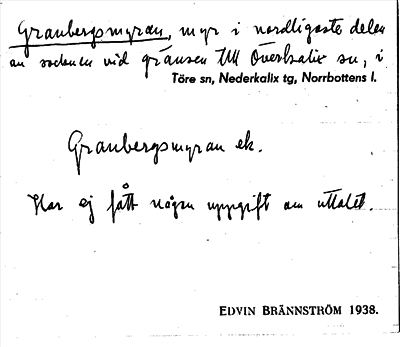 Granbergsmyran, myr i nordligaste delen
av socknen vid gränsen till Överkalix sn, i
Töre sn, Nederkalix tg, Norrbottens l.
Granbergsmyran ek.
Har ej fått någon uppgift om uttalet.
EDVIN BRÄNNSTRÖM 1938.